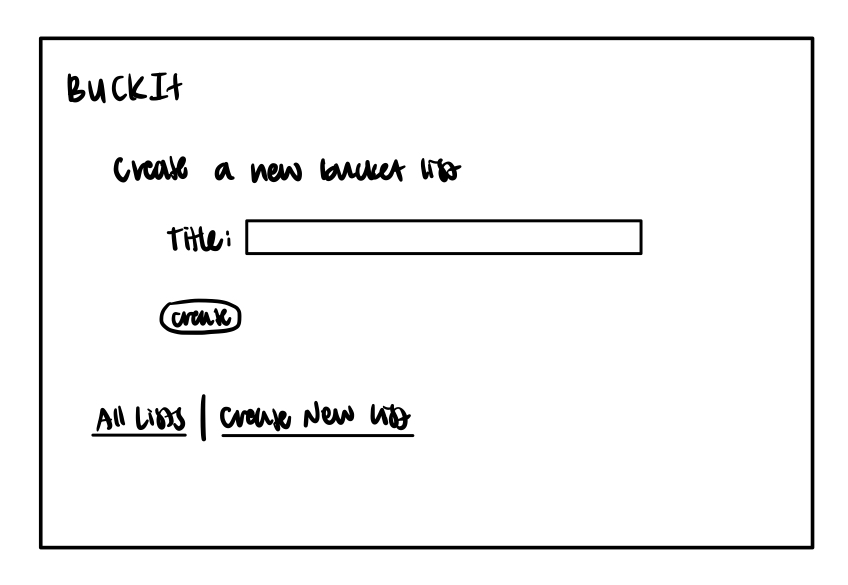 BUCKIt
Create a new bucket list
Title:
create
All Lists | Create New List